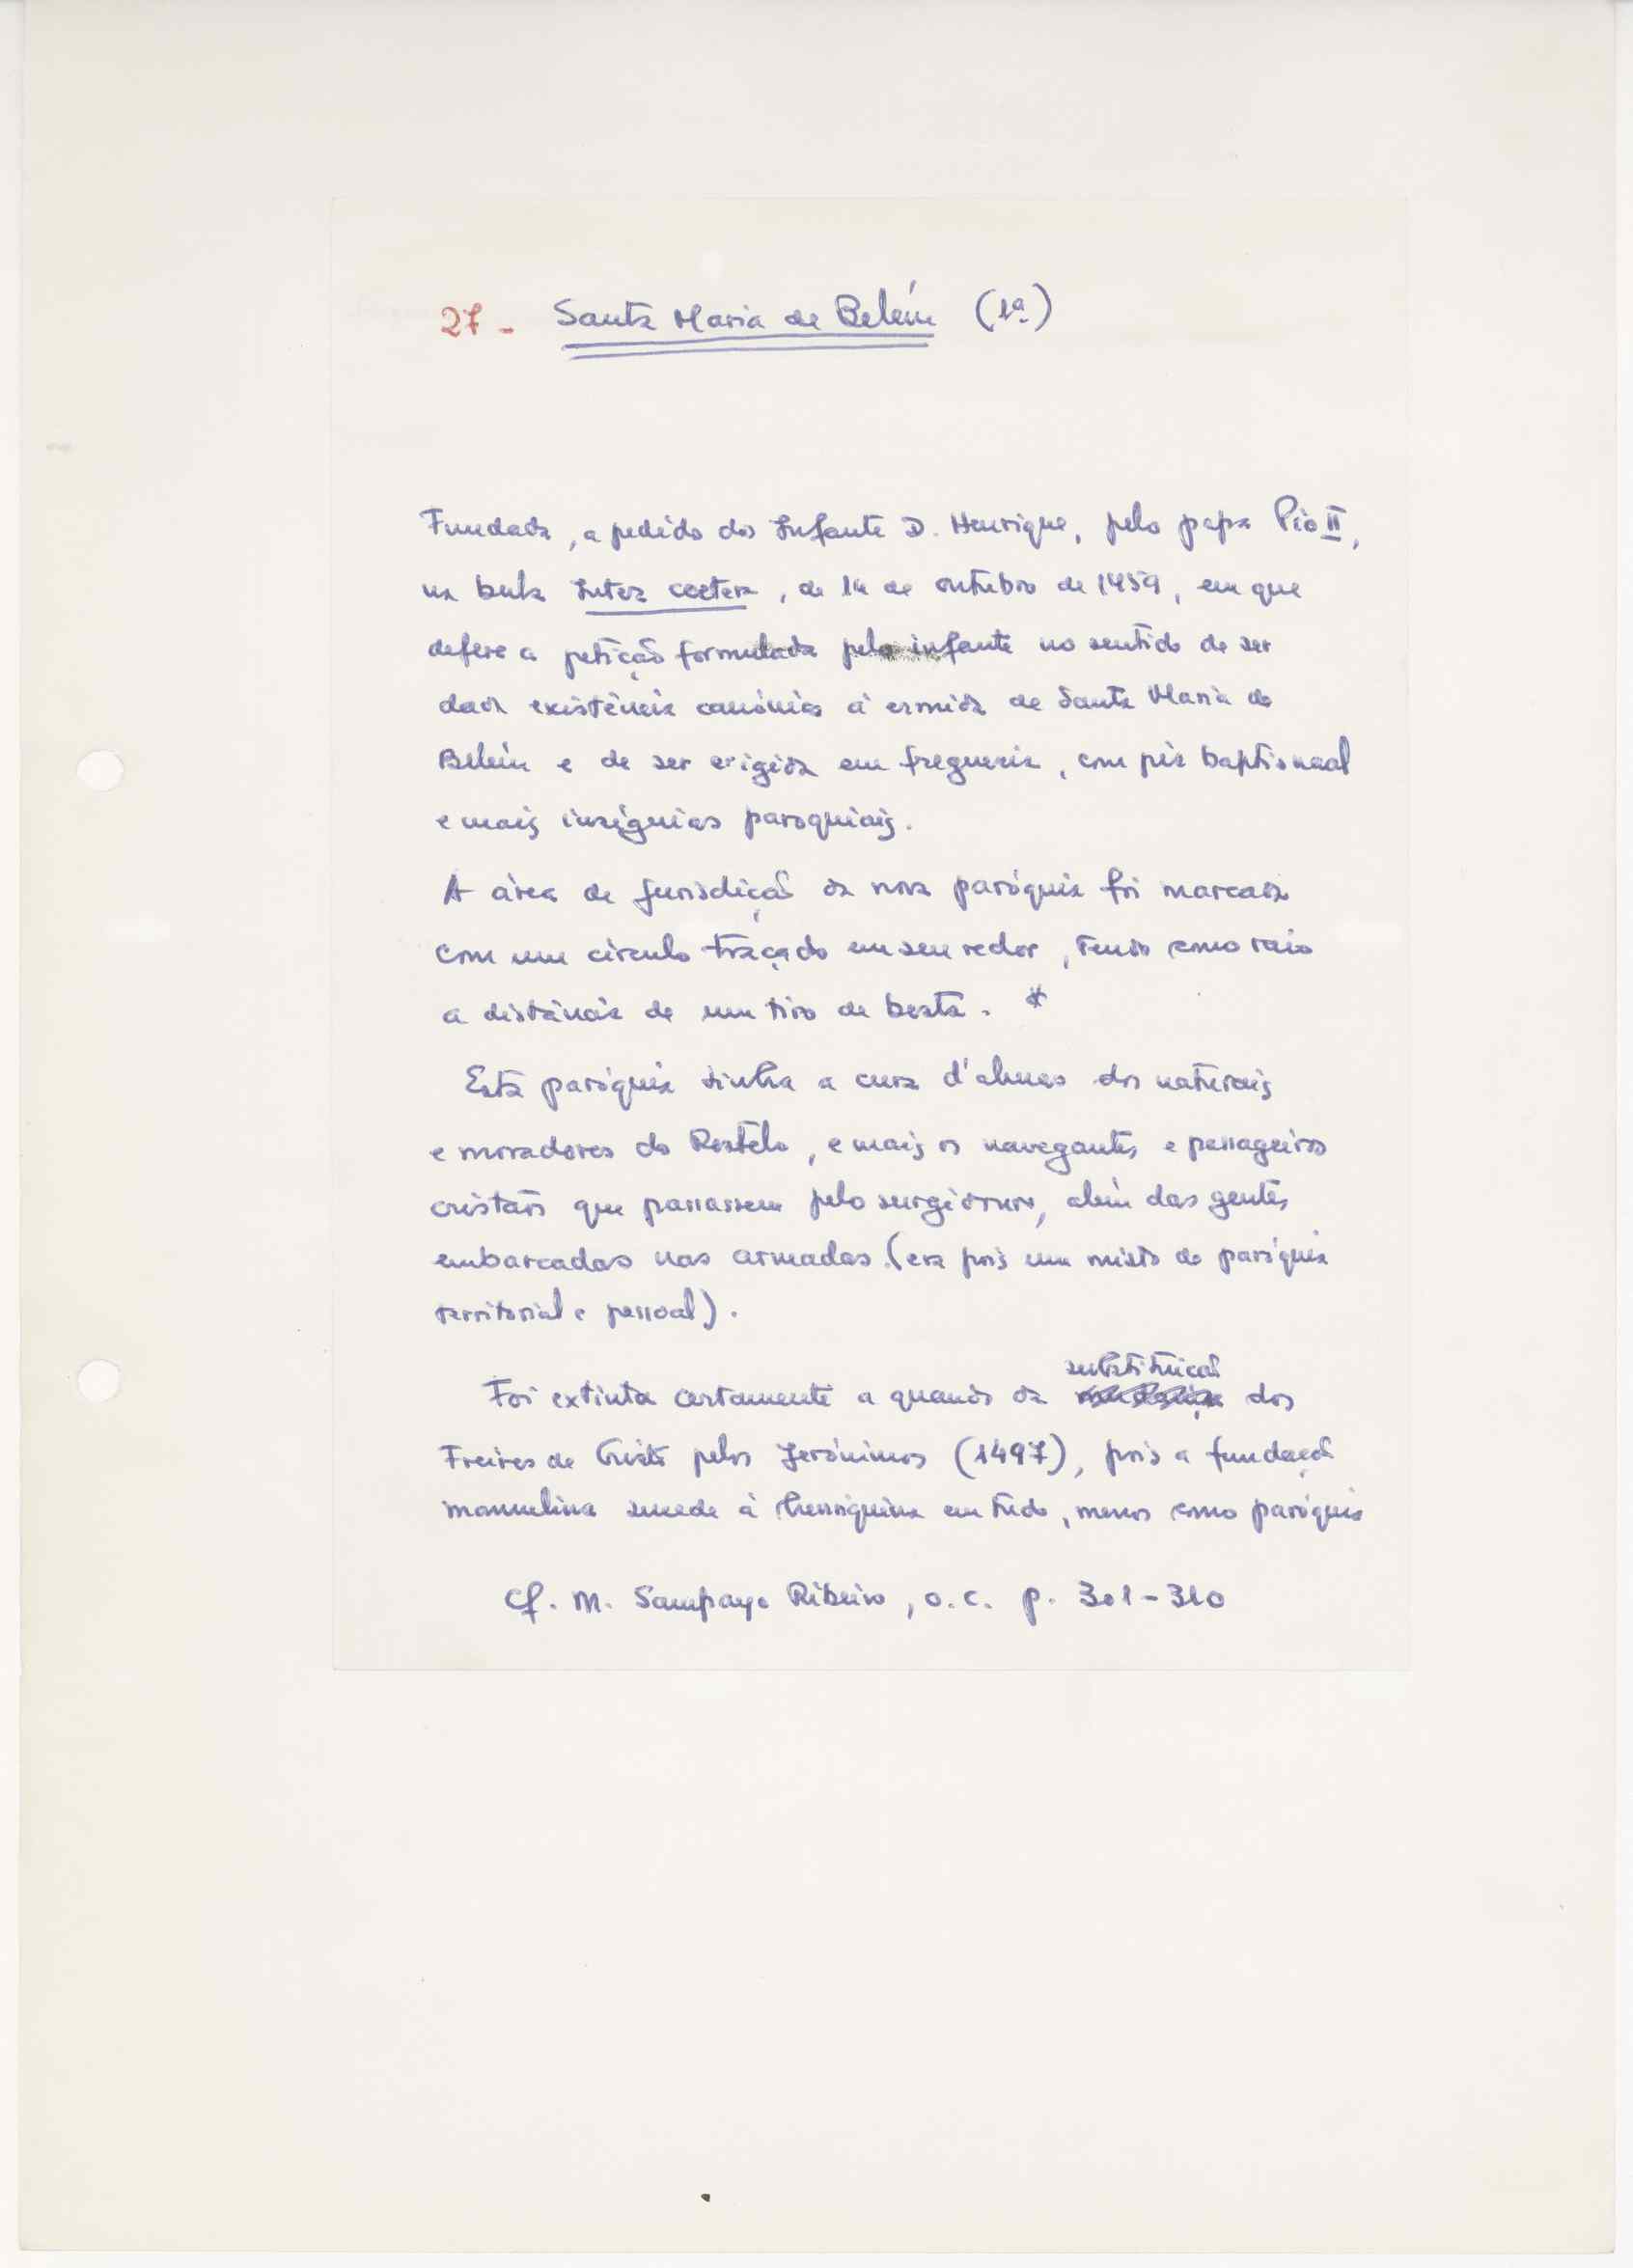 27 - Santa Maria de Belém (1ª)
Fundada, a pedido do Infante D. Henrique, pelo papa Pio II,
na bula Inter coetera, de 14 de outubro de 1459, em que
defere a petição formulada pelo infante no sentido de ser
dada existência canónica à ermida de Santa Maria de
Belém e de ser erigida em freguesia, com pia baptismal
e mais insígnias paroquiais.
A área de jurisdição da nova paróquia foi marcada
com um círculo traçado em seu redor, tendo como raio
a distância de um tiro de besta. *
Esta paróquia tinha a cura d'almas dos naturais
e moradores do Restelo, e mais os navegantes e passageiros
cristãos que passassem pelo surgidouro, além das gentes
embarcadas nas armadas. (era pois um misto de paróquia
territorial e pessoal).
substituição
Foi extinta certamente a quando da dos
Freires de Cristo pelos Jerónimos (1497), pois a fundação
manuelina sucede à henriquina em tudo, menos como paróquia
Cf. M. Sampayo Ribeiro, o.c. p. 301-310